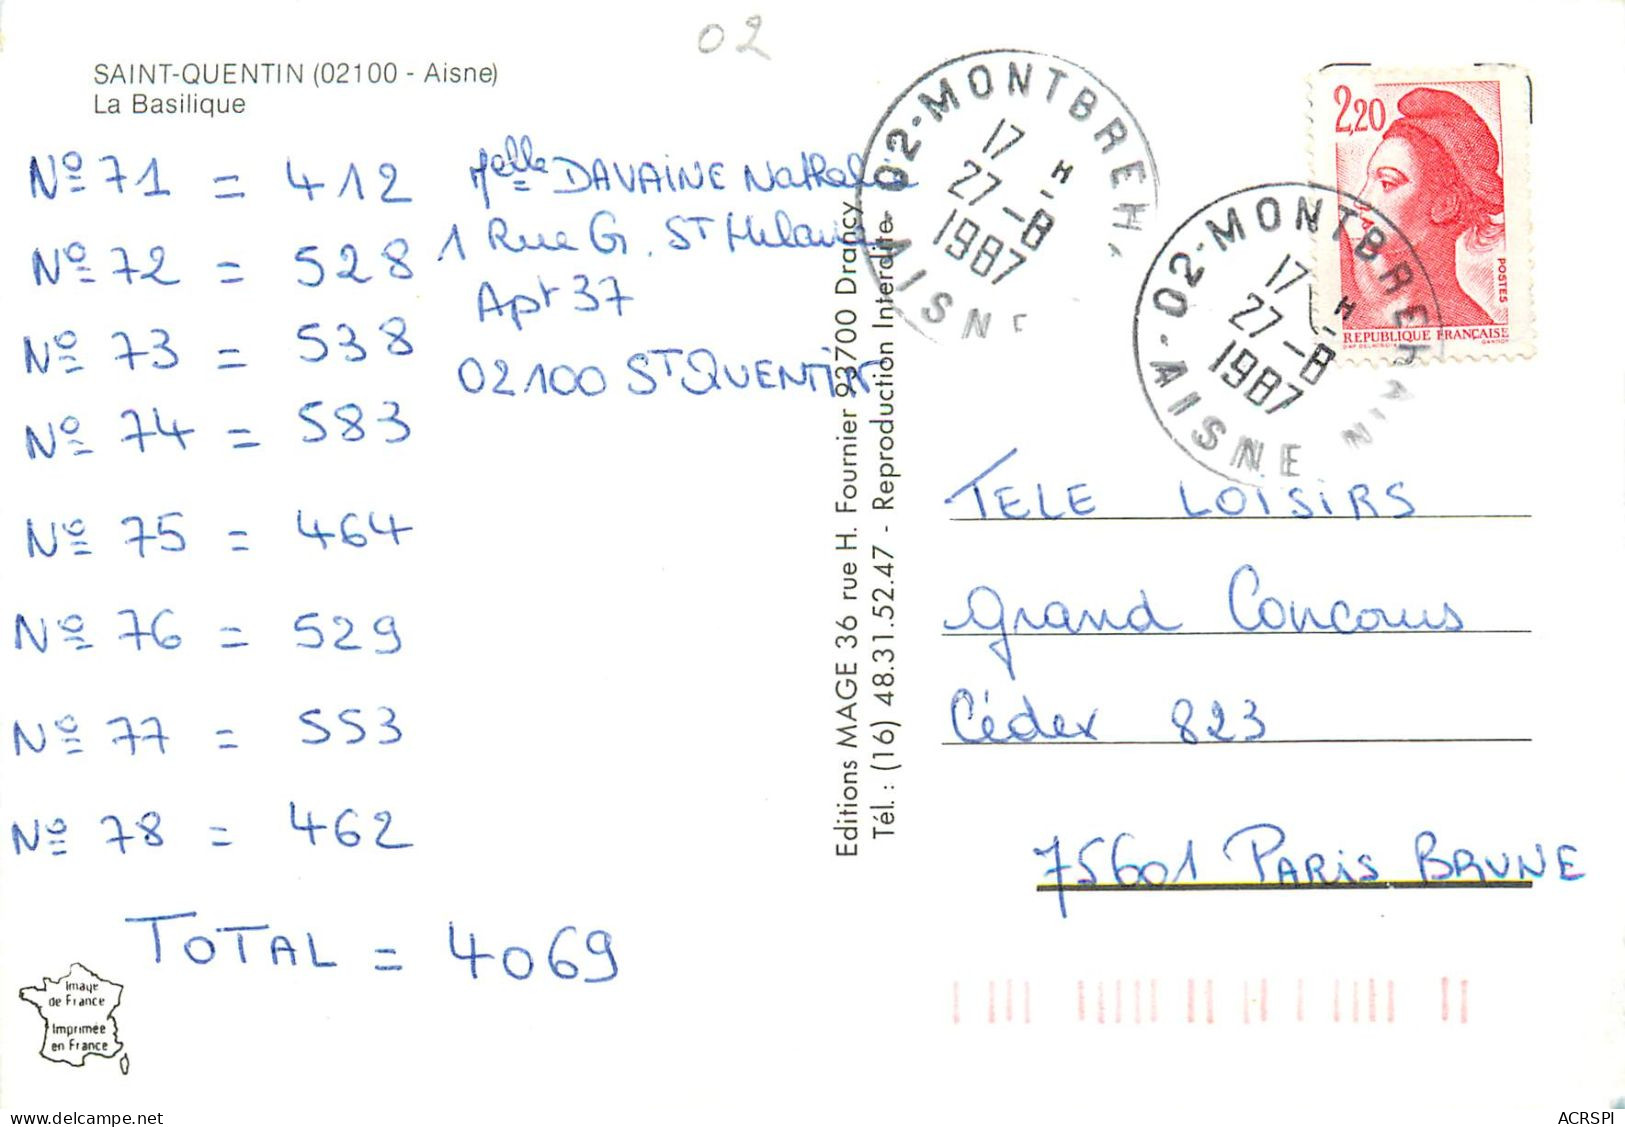 02
SAINT-QUENTIN (02100 - Aisne)
La Basilique
Nº 71 = 412
Nº 72 = 528
Nº 73 = 538
Nº 74 = 583
Nº 75 = 464
Nº 76 = 529
Nº 77 = 553
Nº 78 = 462
TOTAL = 4069
Melle DAVAINE Nathalie
1 Rue G. ST Hilaire
Apt 37
02100 ST QUENTIN
Editions MAGE 36 rue H. Fournier 93700 Drancy
Tél. : (16) 48.31.52.47 - Reproduction Interdite
02-MONTBREH
17 H
27-8
1987
AISNE
02-MONTBREHAIN
17 H
27-8
1987
AISNE
2,20
POSTES
REPUBLIQUE FRANÇAISE
TELE LOISIRS
Grand Concours
Cédex 823
75601 PARIS BRUNE
Image
de France
Imprimée
en France
ACRSPI